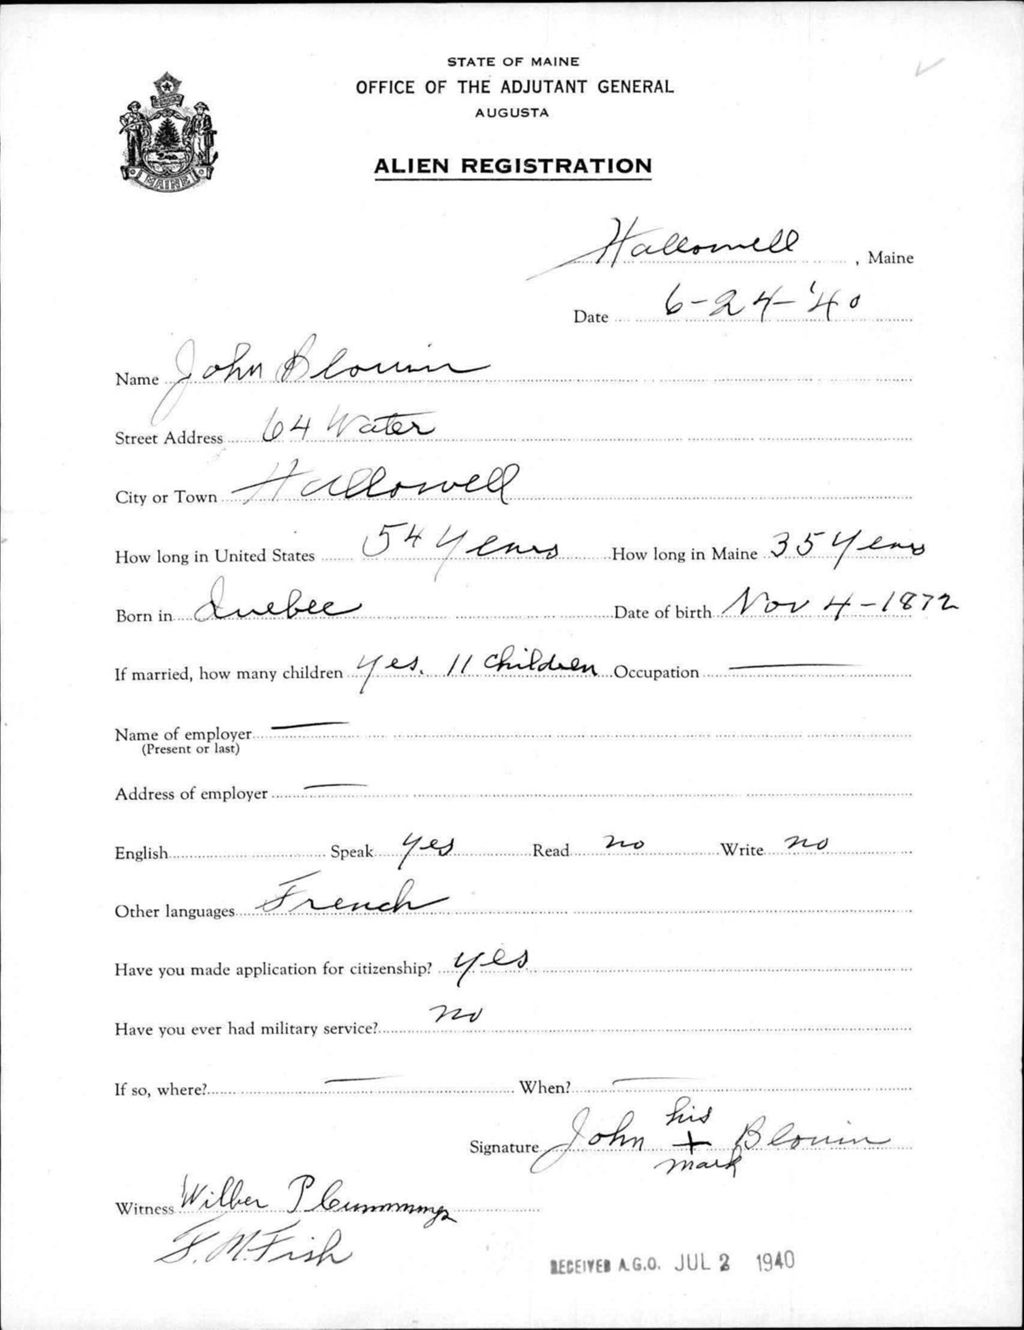 STATE OF MAINE
OFFICE OF THE ADJUTANT GENERAL
AUGUSTA
ALIEN REGISTRATION
MAINE
Hallowell, Maine
Date 6-24-'40
Name John Blouin
Street Address 64 Water
City or Town Hallowell
How long in United States 54 Years How long in Maine 35 Years
Born in Quebec Date of birth Nov 4-1872
If married, how many children yes. 11 children Occupation —
Name of employer —
(Present or last)
Address of employer —
English Speak yes Read no Write no
Other languages French
Have you made application for citizenship? yes
Have you ever had military service? no
If so, where? — When? —
his
Signature John + Blouin
mark
Witness Wilber P Cummings
F. M. Fish
RECEIVED A.G.O. JUL 2 1940